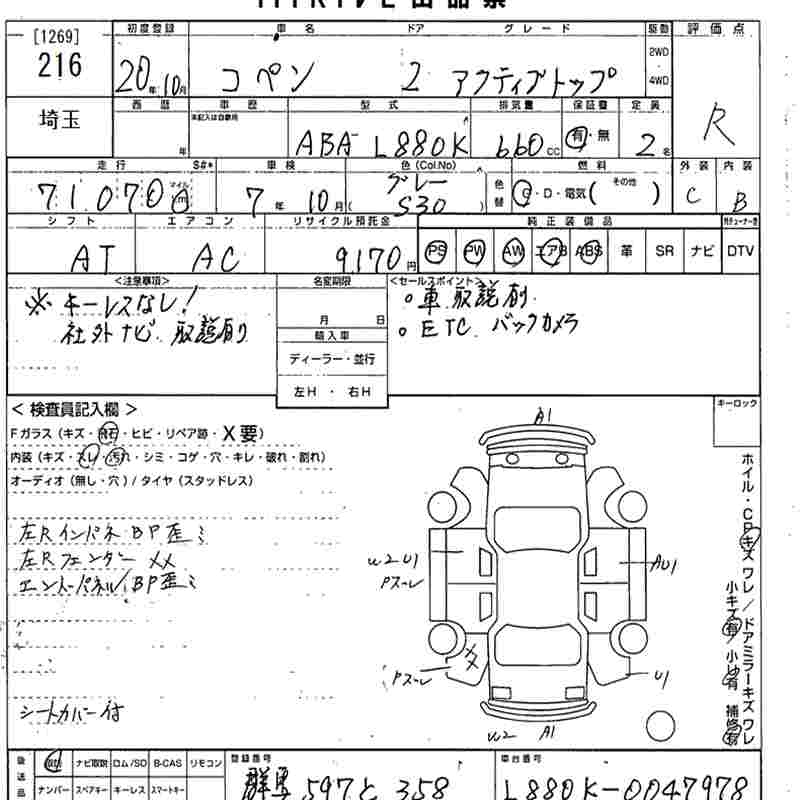 [1269] 初度登録 車名 ドア グレード 駆動 評価点
216 20年10月 コペン 2 アクティブトップ 2WD 4WD R
埼玉 西暦 車歴 型式 排気量 保証書 定員
年 本記入は自家用 ABA-L880K 660cc 有・無 2名
走行 S#* 車検 色(Col.No) 燃料 外装 内装
71,070 マイル km 7年10月 グレー S30 色替 G・D・電気( その他 ) C B
シフト エアコン リサイクル預託金 純正装備品
AT AC 9,170円 PS PW AW エアB ABS 革 SR ナビ DTV
<注意事項> 名変期限 <セールスポイント>
※キーレスなし! 月 日 ○車取説有り
社外ナビ取説有り 輸入車 ○ETC バックカメラ
ディーラー・並行
左H ・ 右H
<検査員記入欄> キーロック
Fガラス(キズ・飛石・ヒビ・リペア跡・X要)
内装(キズ・スレ・汚れ・シミ・コゲ・穴・キレ・破れ・割れ)
オーディオ(無し・穴)/タイヤ(スタッドレス)
左RインパネBP歪ミ
左Rフェンダー XX
エンドパネルBP歪ミ
シートカバー付
A1
W2 U1
Pスレ
AU1
XX
Pスレ
U1
W2 A1
ホイル・CPキズワレ/ドアミラーキズワレ
小キズ有/小凹有 補修有
後送品 取説 ナビ取説 ロム/SD B-CAS リモコン 登録番号 車台番号
ナンバー スペアキー キーレス スマートキー 群馬 597 と 358 L880K-0047978